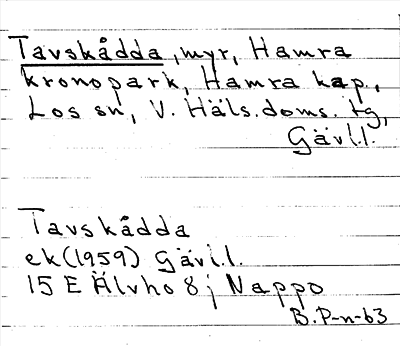 Tavskådda, myr, Hamra
kronopark, Hamra kap.,
Los sn, V. Häls. doms. tg,
Gävl.l.
Tavskådda
ek (1959) Gävl.l.
15 E Älvho 8 j Nappo
B.P-n-63